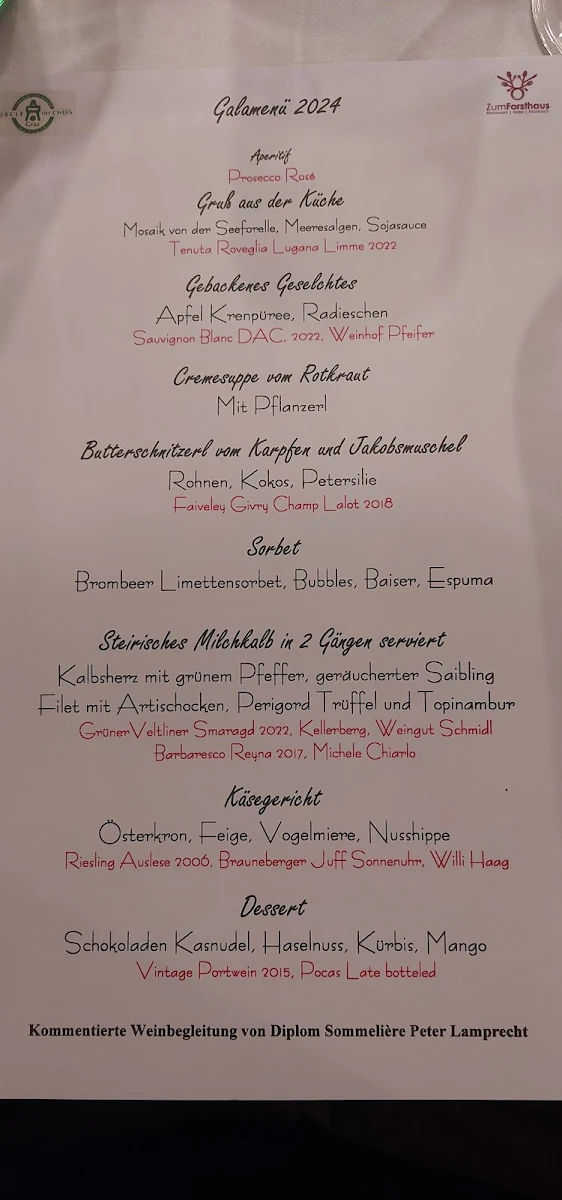 CERCLE DES CHEFS
Graz
ZumForsthaus
Galamenü 2024
Aperitif
Prosecco Rosé
Gruß aus der Küche
Mosaik von der Seeforelle, Meeresalgen, Sojasauce
Tenuta Roveglia Lugana Limme 2022
Gebackenes Geselchtes
Apfel Krenpüree, Radieschen
Sauvignon Blanc DAC, 2022, Weinhof Pfeifer
Cremesuppe vom Rotkraut
Mit Pflanzerl
Butterschnitzerl vom Karpfen und Jakobsmuschel
Rohnen, Kokos, Petersilie
Faiveley Givry Champ Lalot 2018
Sorbet
Brombeer Limettensorbet, Bubbles, Baiser, Espuma
Steirisches Milchkalb in 2 Gängen serviert
Kalbsherz mit grünem Pfeffer, geräucherter Saibling
Filet mit Artischocken, Perigord Trüffel und Topinambur
GrünerVeltliner Smaragd 2022, Kellerberg, Weingut Schmidl
Barbaresco Reyna 2017, Michele Chiarlo
Käsegericht
Österkron, Feige, Vogelmiere, Nusshippe
Riesling Auslese 2006, Brauneberger Juff Sonnenuhr, Willi Haag
Dessert
Schokoladen Kasnudel, Haselnuss, Kürbis, Mango
Vintage Portwein 2015, Pocas Late botteled
Kommentierte Weinbegleitung von Diplom Sommelière Peter Lamprecht